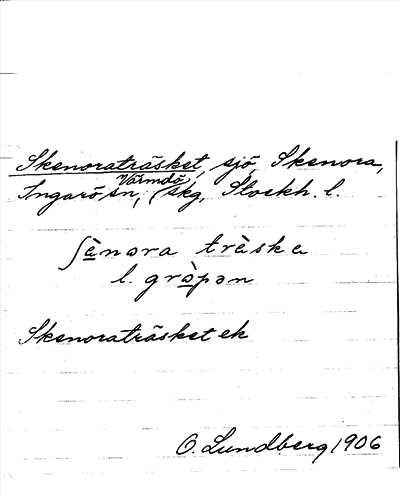 Skenoraträsket, sjö, Skenora,
Ingarö sn, Värmdö skg, Stockh. l.
ʃènora trèske
l. gròpən
Skenoraträsket ek
O. Lundberg 1906